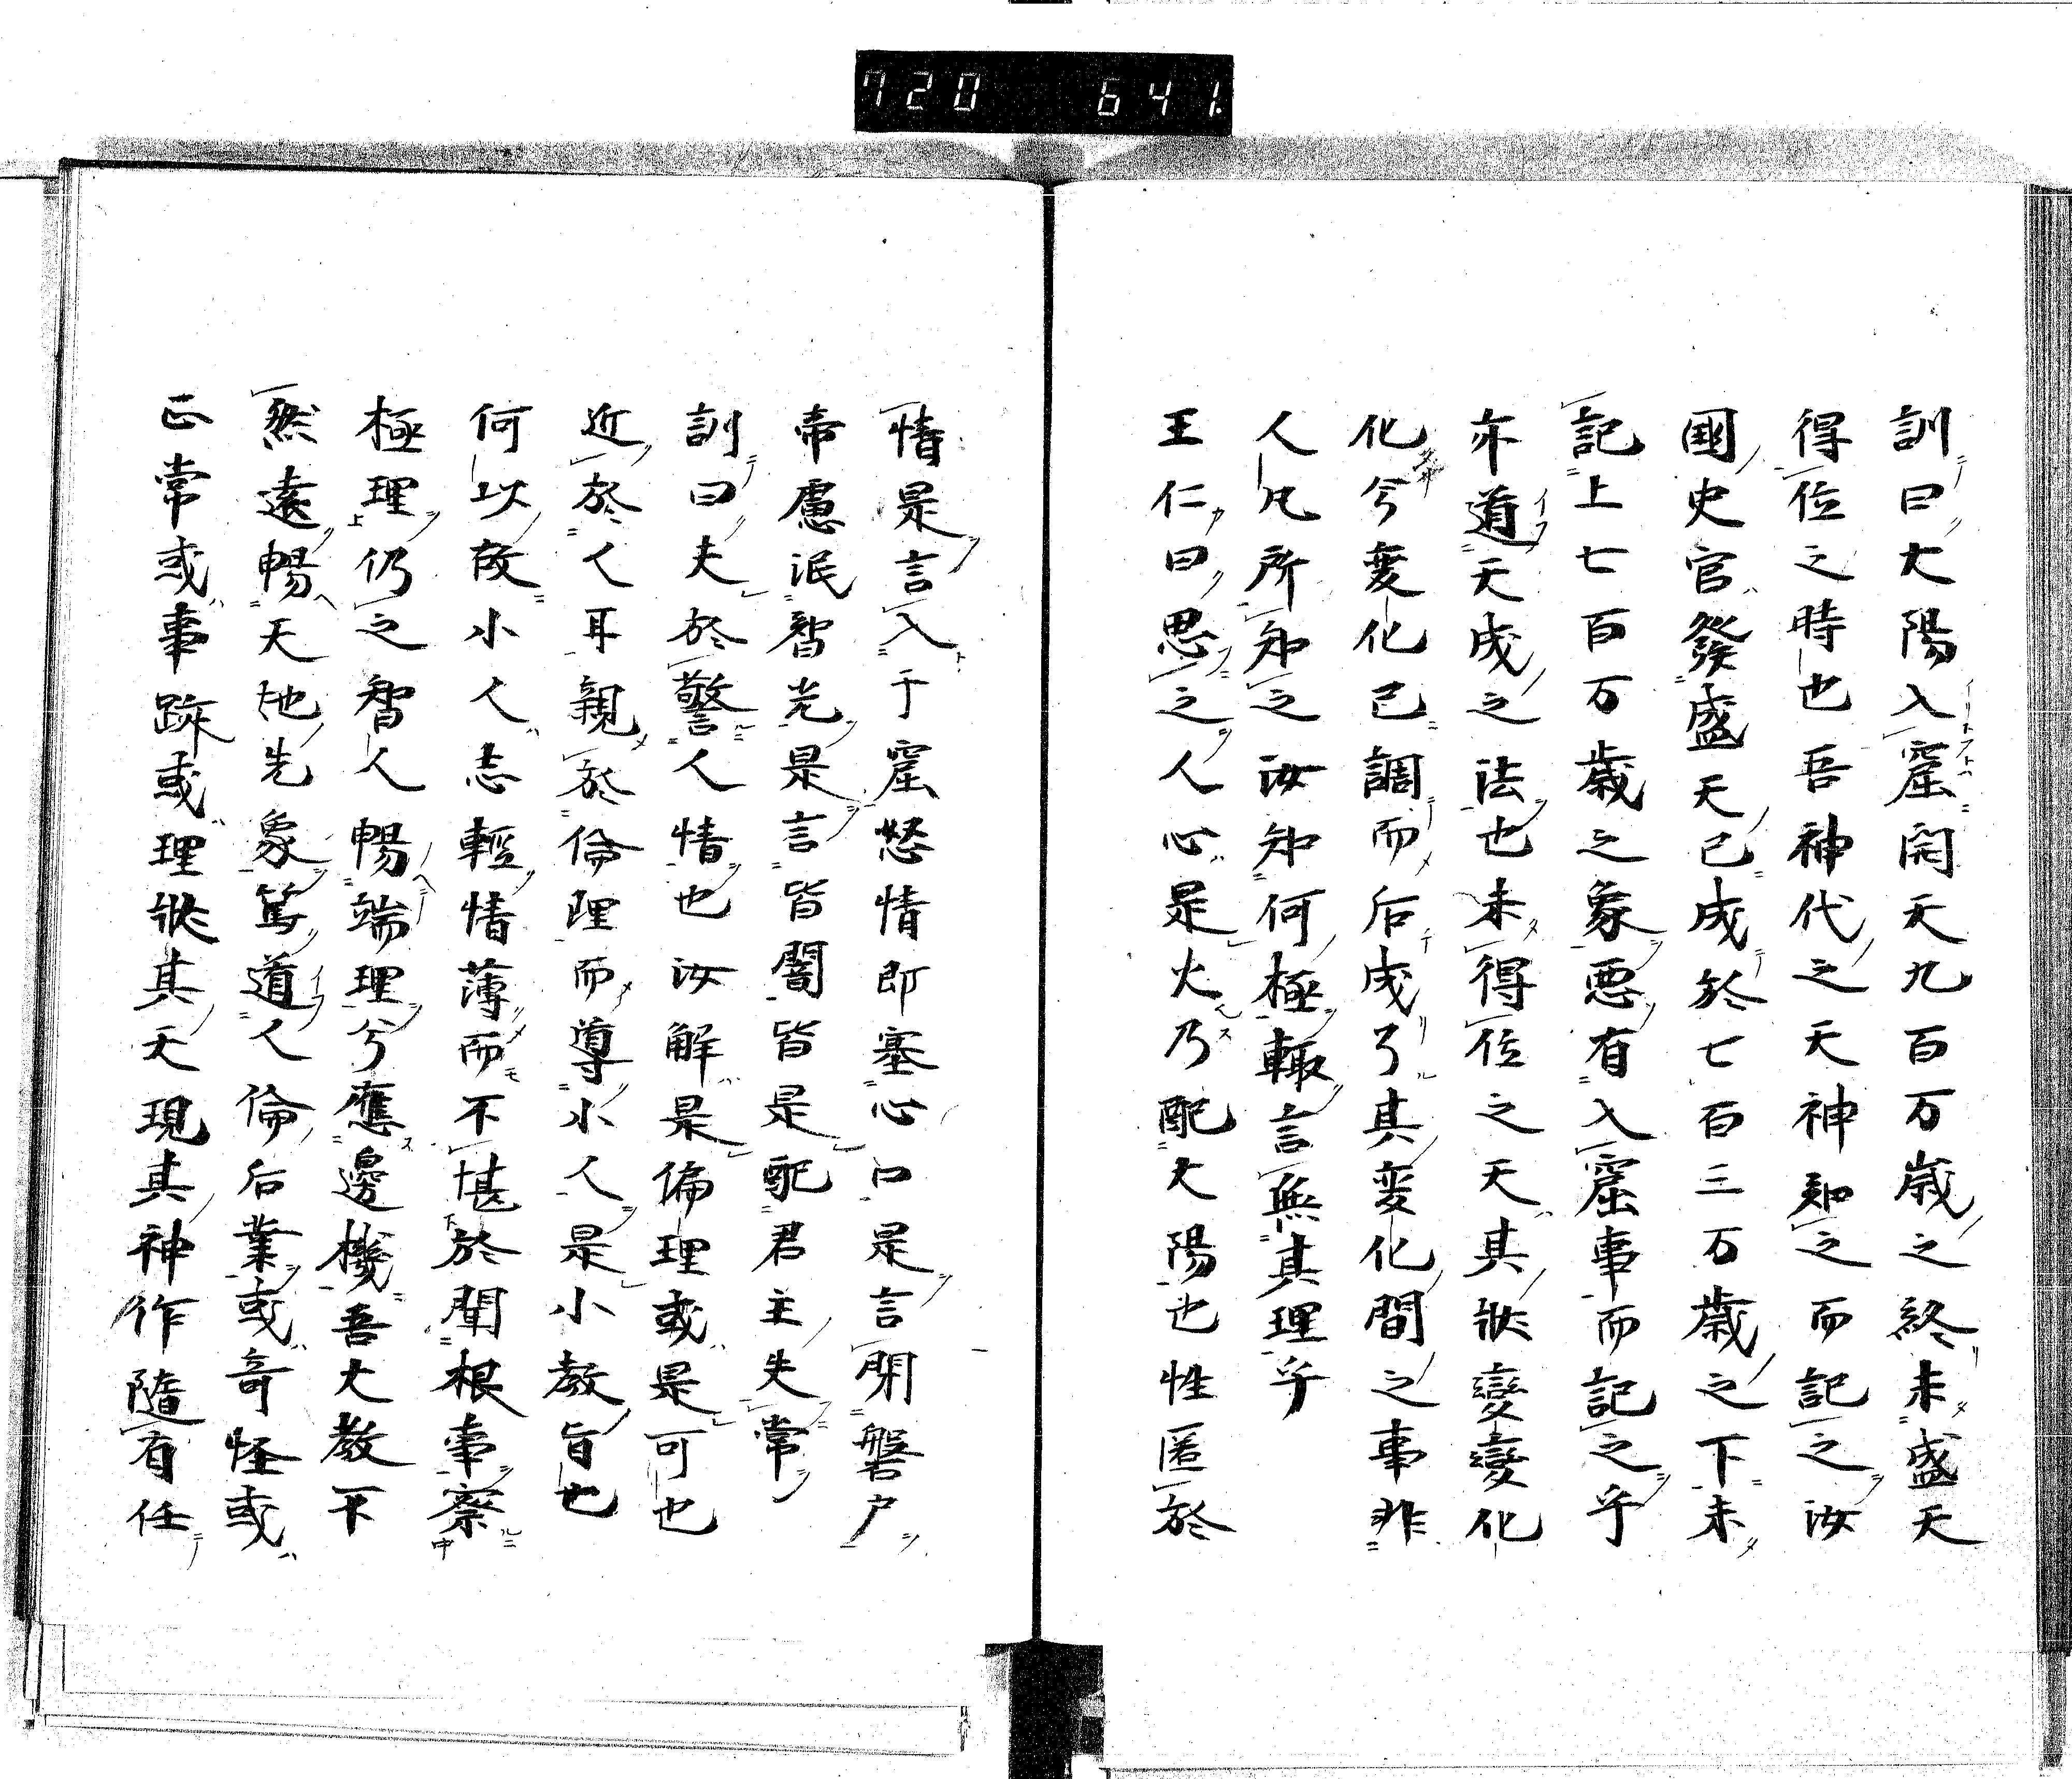 720 641
訓曰大陽入窟開天九百万歳之終未盛天
得位之時也吾神代之天神知之而記之汝
國史官發盛天已成於七百三万歳之下未
記上七百万歳之象惡有入窟事而記之乎
亦道天成之法也未得位之天其狀變變化
化兮変化已調而后成了其変化間之事非
人凡所知之汝知何極輙言無其理乎
王仁曰思之人心是火乃配大陽也性匿於
情是言入于窟怒情即塞心口是言閇磐戸
帝慮泯智光是言皆闇皆是配君主失常
訓曰夫於警人情也汝解是偏理或是可也
近於人耳親於倫理而導小人是小教旨也
何以故小人志輕情薄而不甚於聞根事察
極理仍之智人暢端理兮應邊機吾大教不
然遠暢天地先象篤道人倫后業或奇怪或
正常或事跡或理狀其天現其神作隨有任